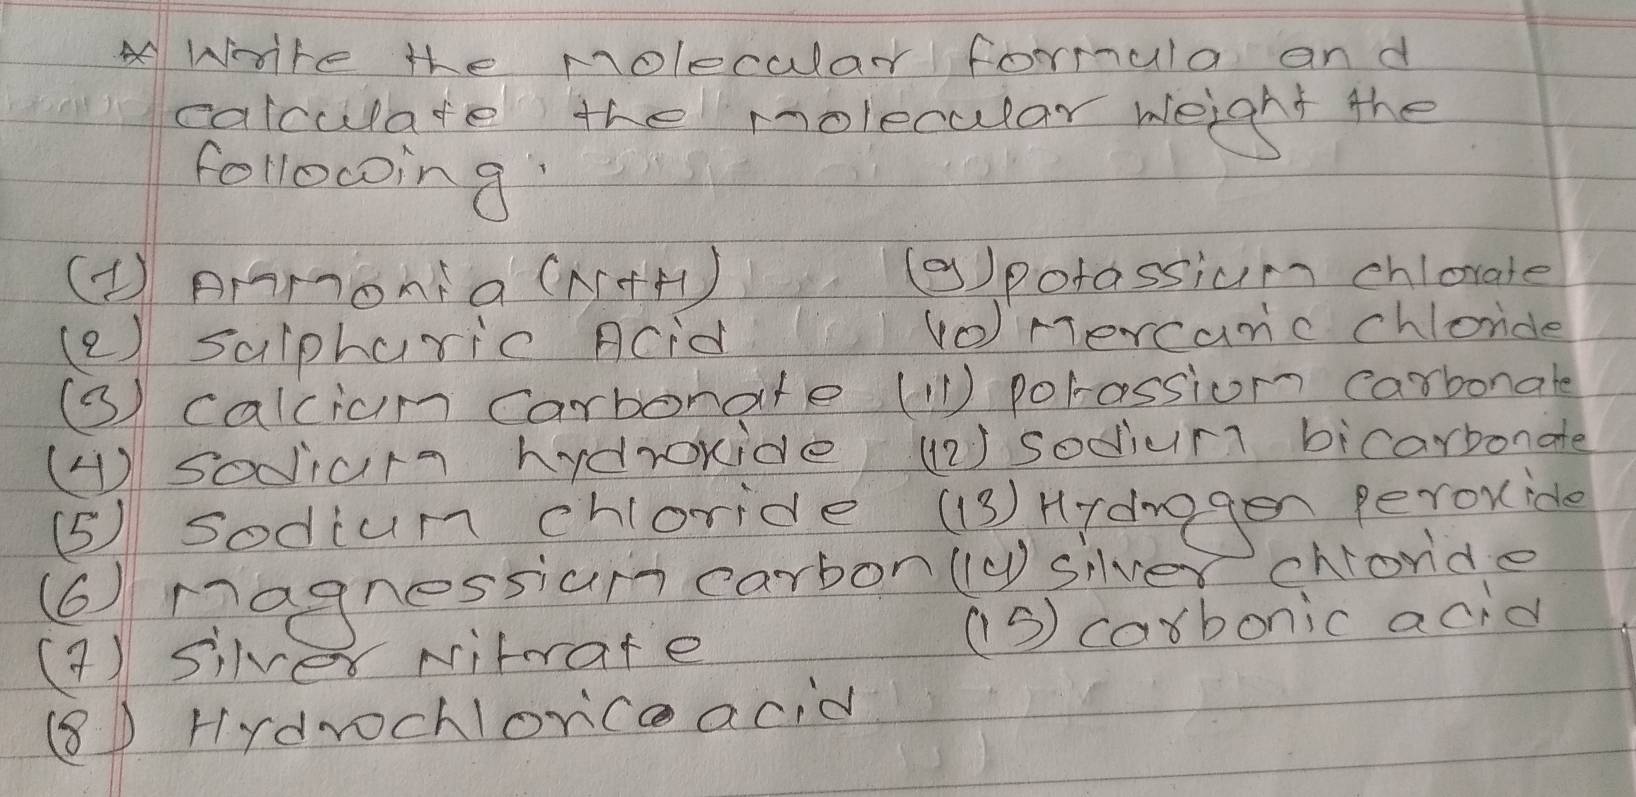 * Write the molecular formula and
calculate the molecular weight the
following.
(1) Ammonia (N+H)
(2) Sulphuric Acid
(3) Calcium Carbonate
(4) Sodium hydroxide
(5) Sodium chloride
(6) Magnessium carbon
(7) Silver Nitrate
(8) Hydrochloric acid
(9) potassium chlorate
10) Mercuric chloride
(11) potassium carbonate
(12) Sodium bicarbonate
(13) Hydrogen peroxide
(14) silver chloride
(15) carbonic acid